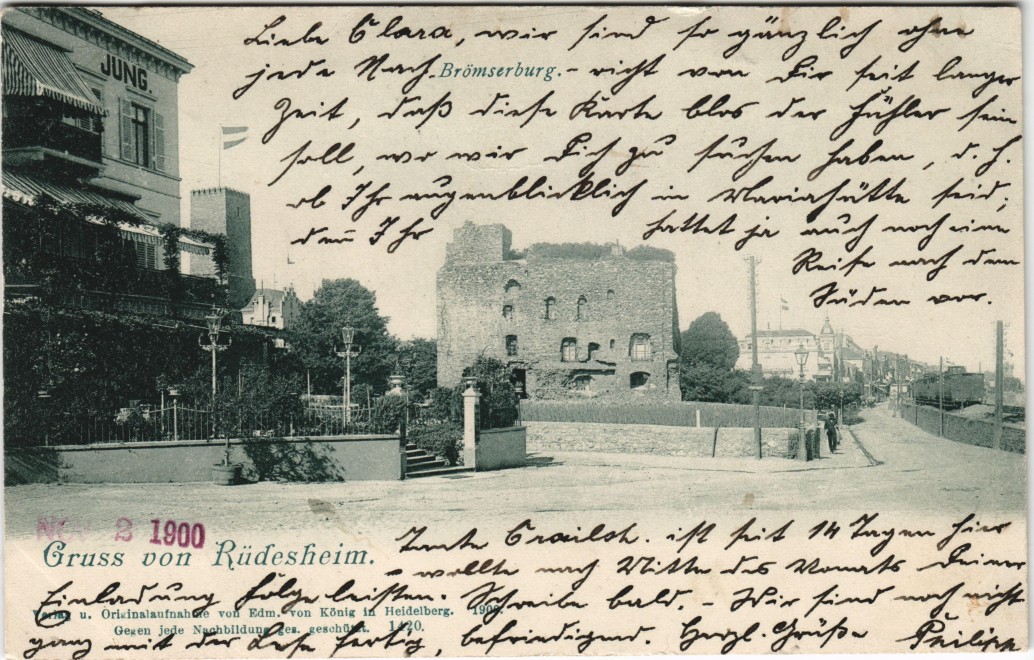 JUNG.
Liebe Clara, wir sind so gänzlich ohne
jede Nach- Brömserburg. - richt von Dir seit langer
Zeit, daß diese Karte blos der Fühler sein
soll, wo wir Dich zu suchen haben, d. h.
ob Ihr augenblicklich in Mariahütte seid;
denn Ihr hattet ja auch noch eine
Reise nach dem
Süden vor.
NOV 2 1900
Gruss von Rüdesheim.
Tante Crailsh. ist seit 14 Tagen hier
- wollte nach Mitte des Monats Deiner
Einladung Folge leisten. Schreibe bald. - Wir sind noch nicht
Verlag u. Originalaufnahme von Edm. von König in Heidelberg. 1900.
Gegen jede Nachbildung ges. geschützt. 1420.
ganz mit der Lese fertig, befriedigend. Herzl. Grüße Philipp